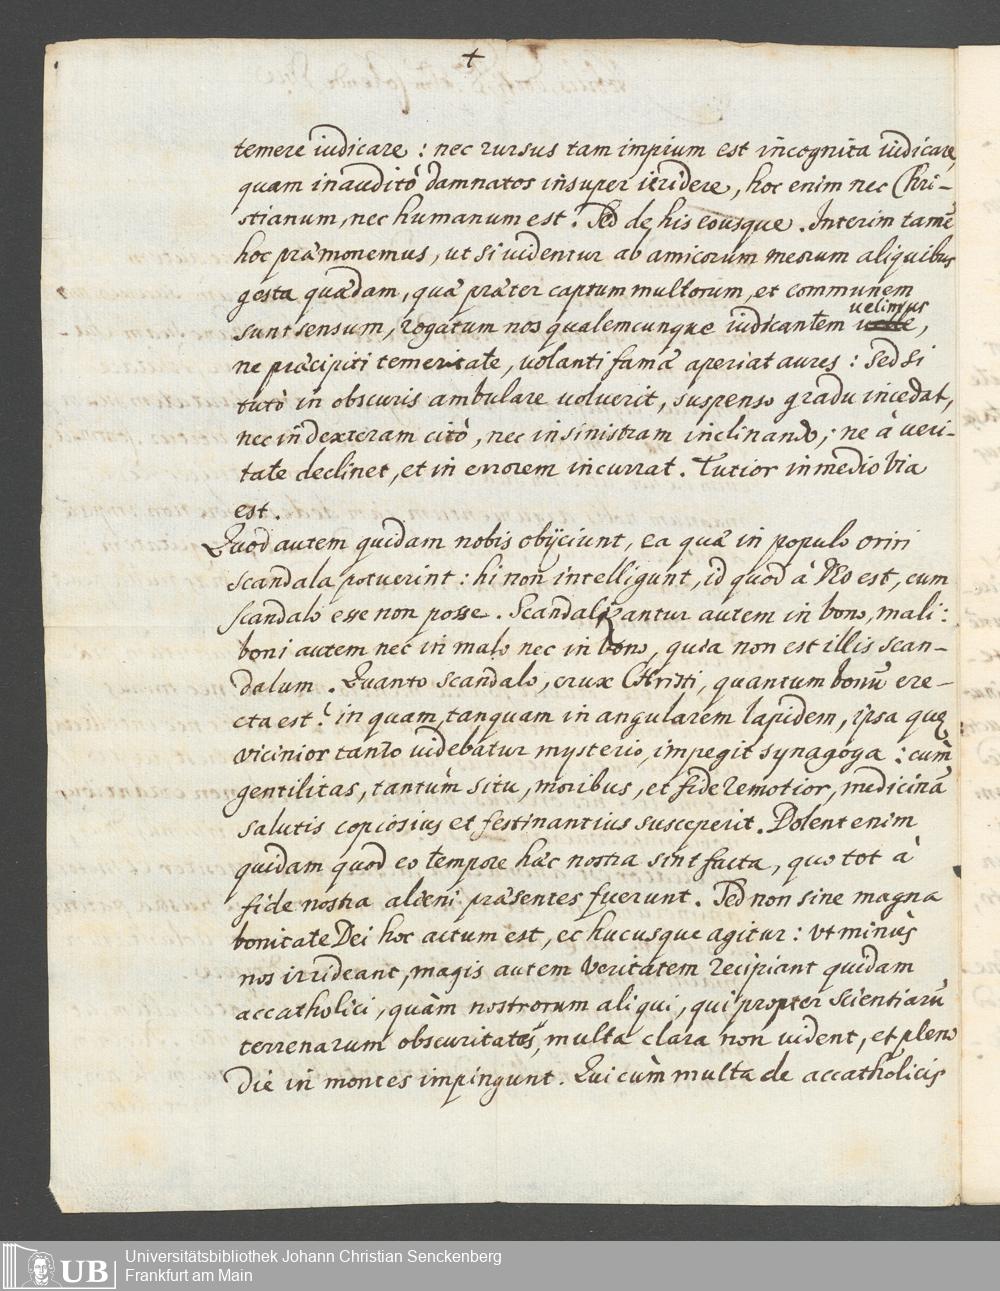 +
temere iudicare : nec rursus tam impium est incognita iudicare,
quam inauditò damnatos insuper irridere, hoc enim nec Chri-
stianum, nec humanum est. Sed de his eousque. Interim tamē
hoc præmonemus, ut si uidentur ab amicorum meorum aliquibus
gesta quædam, quæ præter captum multorum, et communem
sunt sensum, rogatum nos qualemcunque iudicantem uelimus,
ne præcipiti temeritate, uolanti famæ aperiat aures : sed si
tutò in obscuris ambulare uoluerit, suspenso gradu incedat,
nec in dexteram citò, nec in sinistram inclinando; ne à veri-
tate declinet, et in errorem incurrat. Tutior in medio via
est.
Quod autem quidam nobis obijciunt, ea quæ in populo oriri
scandala potuerint : hi non intelligunt, id quod à Deo est, cum
scandalo esse non posse. Scandalizantur autem in bono, mali :
boni autem nec in malo nec in bono, quia non est illis scan-
dalum. Quanto scandalo, crux Christi, quantum bonū ere-
cta est? in quam, tanquam in angularem lapidem, ipsa quę
vicinior tanto uidebatur mysterio, impegit synagoga : cùm
gentilitas, tantùm situ, moribus, et fide remotior, medicinā
salutis copiosius et festinantius susceperit. Dolent enim
quidam quod eo tempore hæc nostra sint facta, quo tot à
fide nostra alieni præsentes fuerunt. Sed non sine magna
bonitate Dei hoc actum est, et hucusque agitur : vt minùs
nos irrideant, magis autem veritatem recipiant quidam
accatholici, quàm nostrorum aliqui, qui propter scientiarū
terrenarum obscuritates, multa clara non uident, et pleno
die in montes impingunt. Qui cùm multa de accatholicis
UB
Universitätsbibliothek Johann Christian Senckenberg
Frankfurt am Main